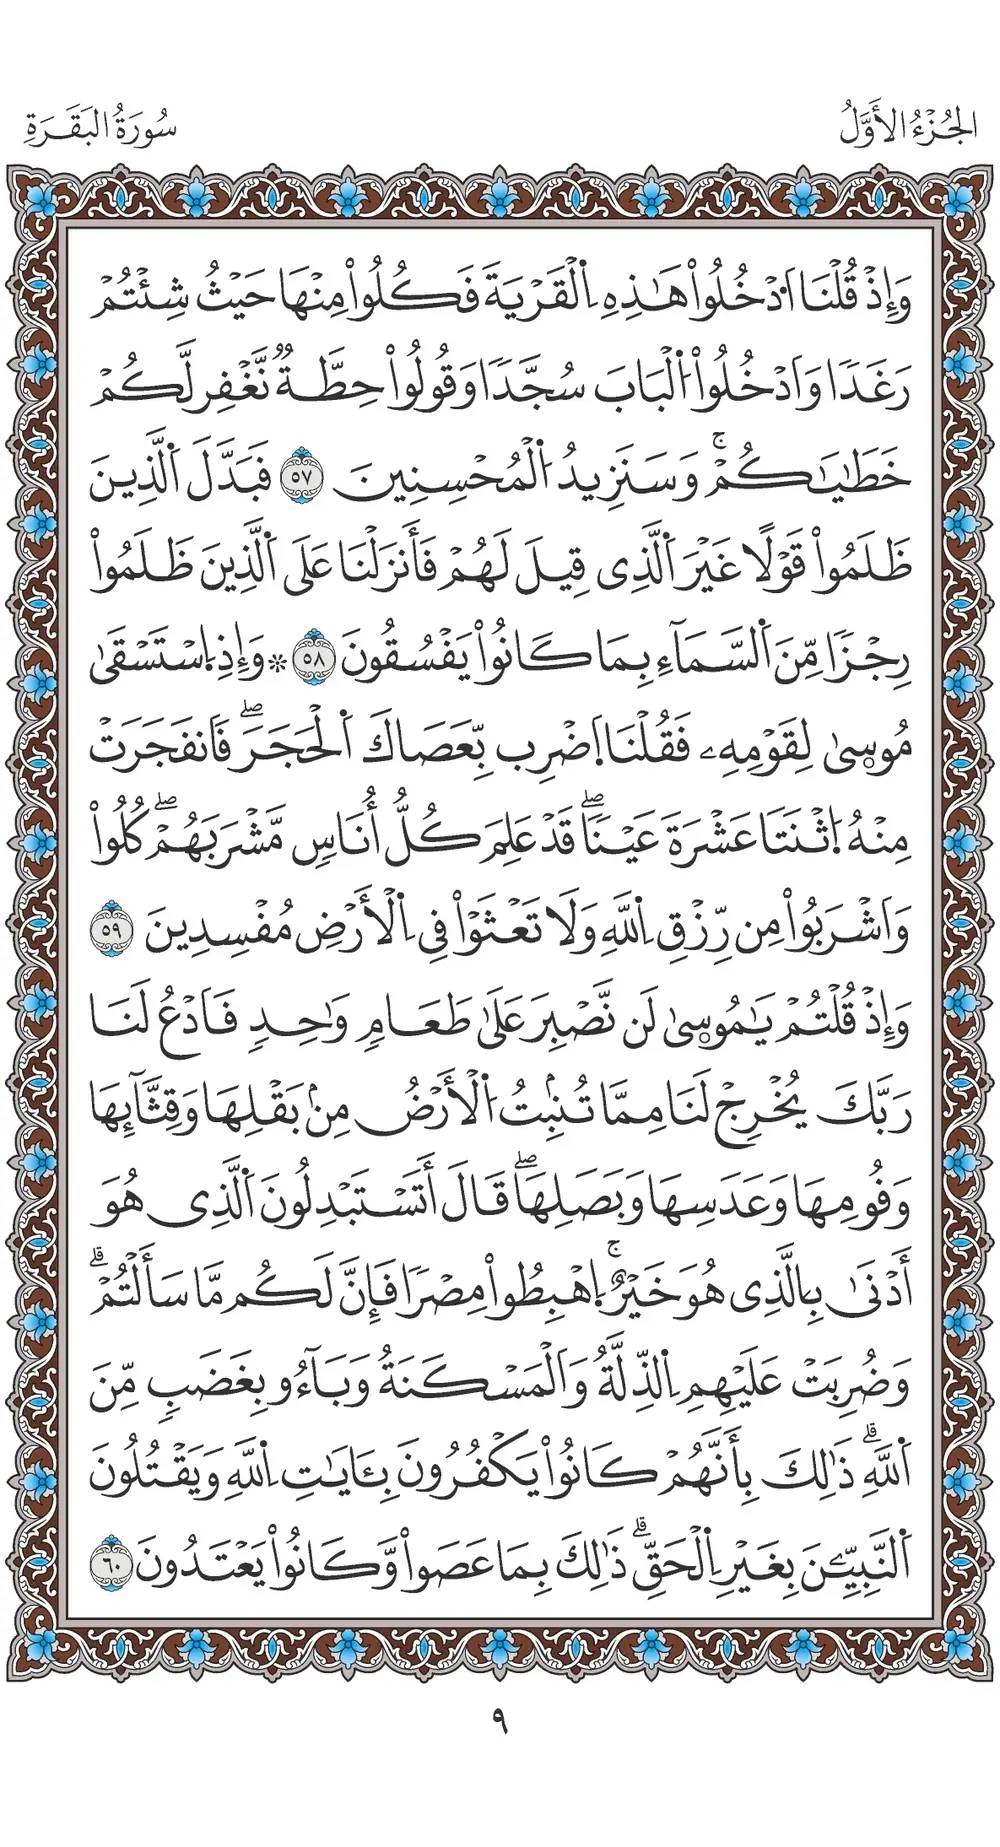 الجُزْءُ الأَوَّلُ
سُورَةُ البَقَرَةِ
وَإِذْ قُلْنَا اَدْخُلُواْ هَٰذِهِ اِ۬لْقَرْيَةَ فَكُلُواْ مِنْهَا حَيْثُ شِئْتُمْ
رَغَدٗا وَادْخُلُواْ اُ۬لْبَابَ سُجَّدٗا وَقُولُواْ حِطَّةٞ نَّغْفِر لَّكُمْ
خَطَٰيَٰكُمْۚ وَسَنَزِيدُ اُ۬لْمُحْسِنِينَ ٥٧ فَبَدَّلَ اَ۬لَّذِينَ
ظَلَمُواْ قَوْلًا غَيْرَ اَ۬لَّذِى قِيلَ لَهُمْ فَأَنزَلْنَا عَلَى اَ۬لَّذِينَ ظَلَمُواْ
رِجْزٗا مِّنَ اَ۬لسَّمَآءِ بِمَا كَانُواْ يَفْسُقُونَ ٥٨ ۞ وَإِذِ اِ۪سْتَسْقَىٰ
مُوسِىٰ لِقَوْمِهِۦ فَقُلْنَا اَ۪ضْرِب بِّعَصَاكَ اَ۬لْحَجَرَۖ فَانفَجَرَتْ
مِنْهُ اُ۪ثْنَتَا عَشْرَةَ عَيْنٗاۖ قَدْ عَلِمَ كُلُّ أُنَاسٖ مَّشْرَبَهُمْۖ كُلُواْ
وَاشْرَبُواْ مِن رِّزْقِ اِ۬للَّهِ وَلَا تَعْثَوْاْ فِى اِ۬لْأَرْضِ مُفْسِدِينَ ٥٩
وَإِذْ قُلْتُمْ يَٰمُوسِىٰ لَن نَّصْبِرَ عَلَىٰ طَعَامٖ وَٰحِدٖ فَادْعُ لَنَا
رَبَّكَ يُخْرِجْ لَنَا مِمَّا تُنۢبِتُ اُ۬لْأَرْضُ مِنۢ بَقْلِهَا وَقِثَّآئِهَا
وَفُومِهَا وَعَدَسِهَا وَبَصَلِهَاۖ قَالَ أَتَسْتَبْدِلُونَ اَ۬لَّذِى هُوَ
أَدْنَىٰ بِالَّذِى هُوَ خَيْرٌۚ اِ۪هْبِطُواْ مِصْرٗا فَإِنَّ لَكُم مَّا سَأَلْتُمْۗ
وَضُرِبَتْ عَلَيْهِمِ اِ۬لذِّلَّةُ وَالْمَسْكَنَةُ وَبَآءُو بِغَضَبٖ مِّنَ
اَ۬للَّهِۗ ذَٰلِكَ بِأَنَّهُمْ كَانُواْ يَكْفُرُونَ بِـَٔايَٰتِ اِ۬للَّهِ وَيَقْتُلُونَ
اَ۬لنَّبِيِّـۧنَ بِغَيْرِ اِ۬لْحَقِّۗ ذَٰلِكَ بِمَا عَصَواْ وَّكَانُواْ يَعْتَدُونَ ٦٠
٩